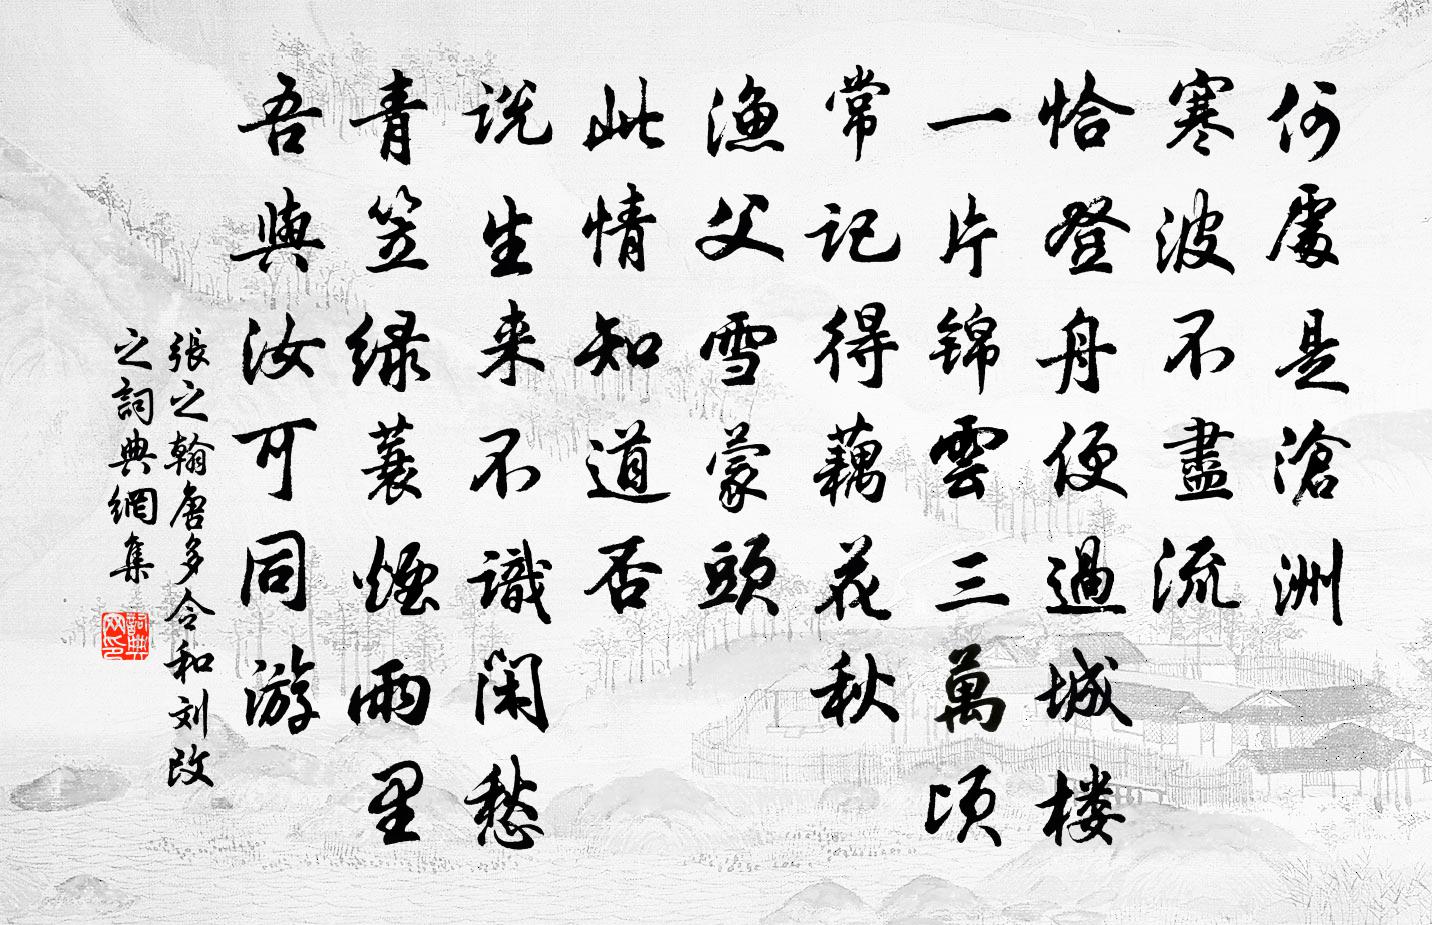 何處是滄洲
寒波不盡流
恰登舟便過城楼
一片锦雲三萬顷
常记得藕花秋
渔父雪蒙頭
此情知道否
说生来不識闲愁
青笠绿蓑烟雨里
吾與汝可同游
張之翰唐多令和刘改
之詞典網集
詞典網印